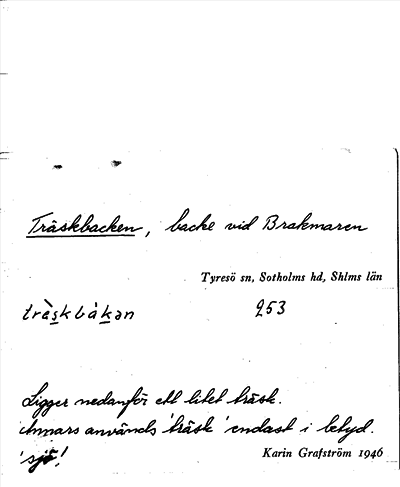 Träskbacken, backe vid Brakmaren
Tyresö sn, Sotholms hd, Shlms län
trɛ̀skbàkən 253
Ligger nedanför ett litet träsk.
Annars används 'träsk' endast i betyd.
'sjö'!
Karin Grafström 1946